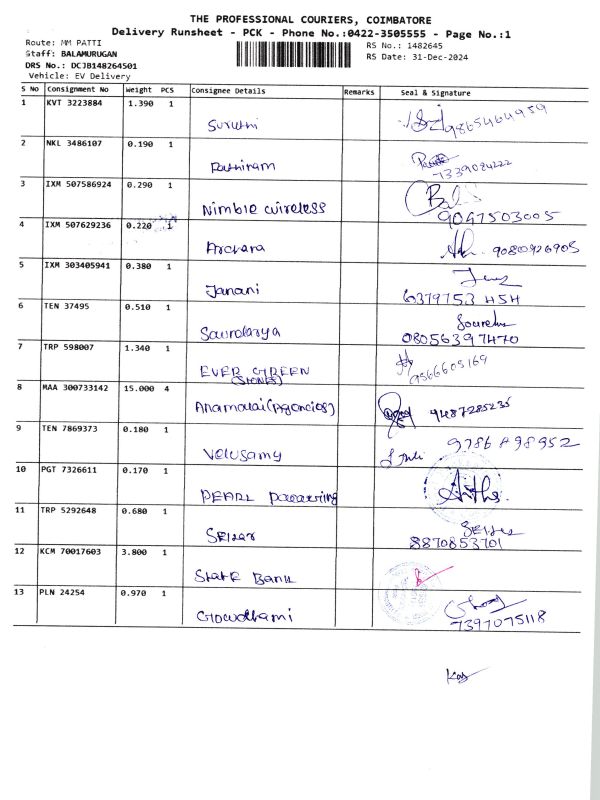 THE PROFESSIONAL COURIERS, COIMBATORE
Delivery Runsheet - PCK - Phone No.:0422-3505555 - Page No.:1
Route: MM PATTI
Staff: BALAMURUGAN
DRS No.: DCJB148264501
Vehicle: EV Delivery
RS No.: 1482645
RS Date: 31-Dec-2024
S No Consignment No Weight PCS Consignee Details Remarks Seal & Signature
1 KVT 3223884 1.390 1
Suruthi 9865464959
2 NKL 3486107 0.190 1
Pathiram 7339084222
3 IXM 507586924 0.290 1
Nimble wireless 9047503005
4 IXM 507629236 0.220 1
Archara 9080926905
5 IXM 303405941 0.380 1
Janani
6 TEN 37495 0.510 1
08056397470
7 TRP 598007 1.340 1
EVER GREEN
(STONES) 9566605169
8 MAA 300733142 15.000 4
Anamalai (Agencies) 9487285235
9 TEN 7869373 0.180 1
Velusamy
10 PGT 7326611 0.170 1
PEARL
11 TRP 5292648 0.680 1
8870853701
12 KCM 70017603 3.800 1
State Bank
13 PLN 24254 0.970 1
Gowdhami 7397075118